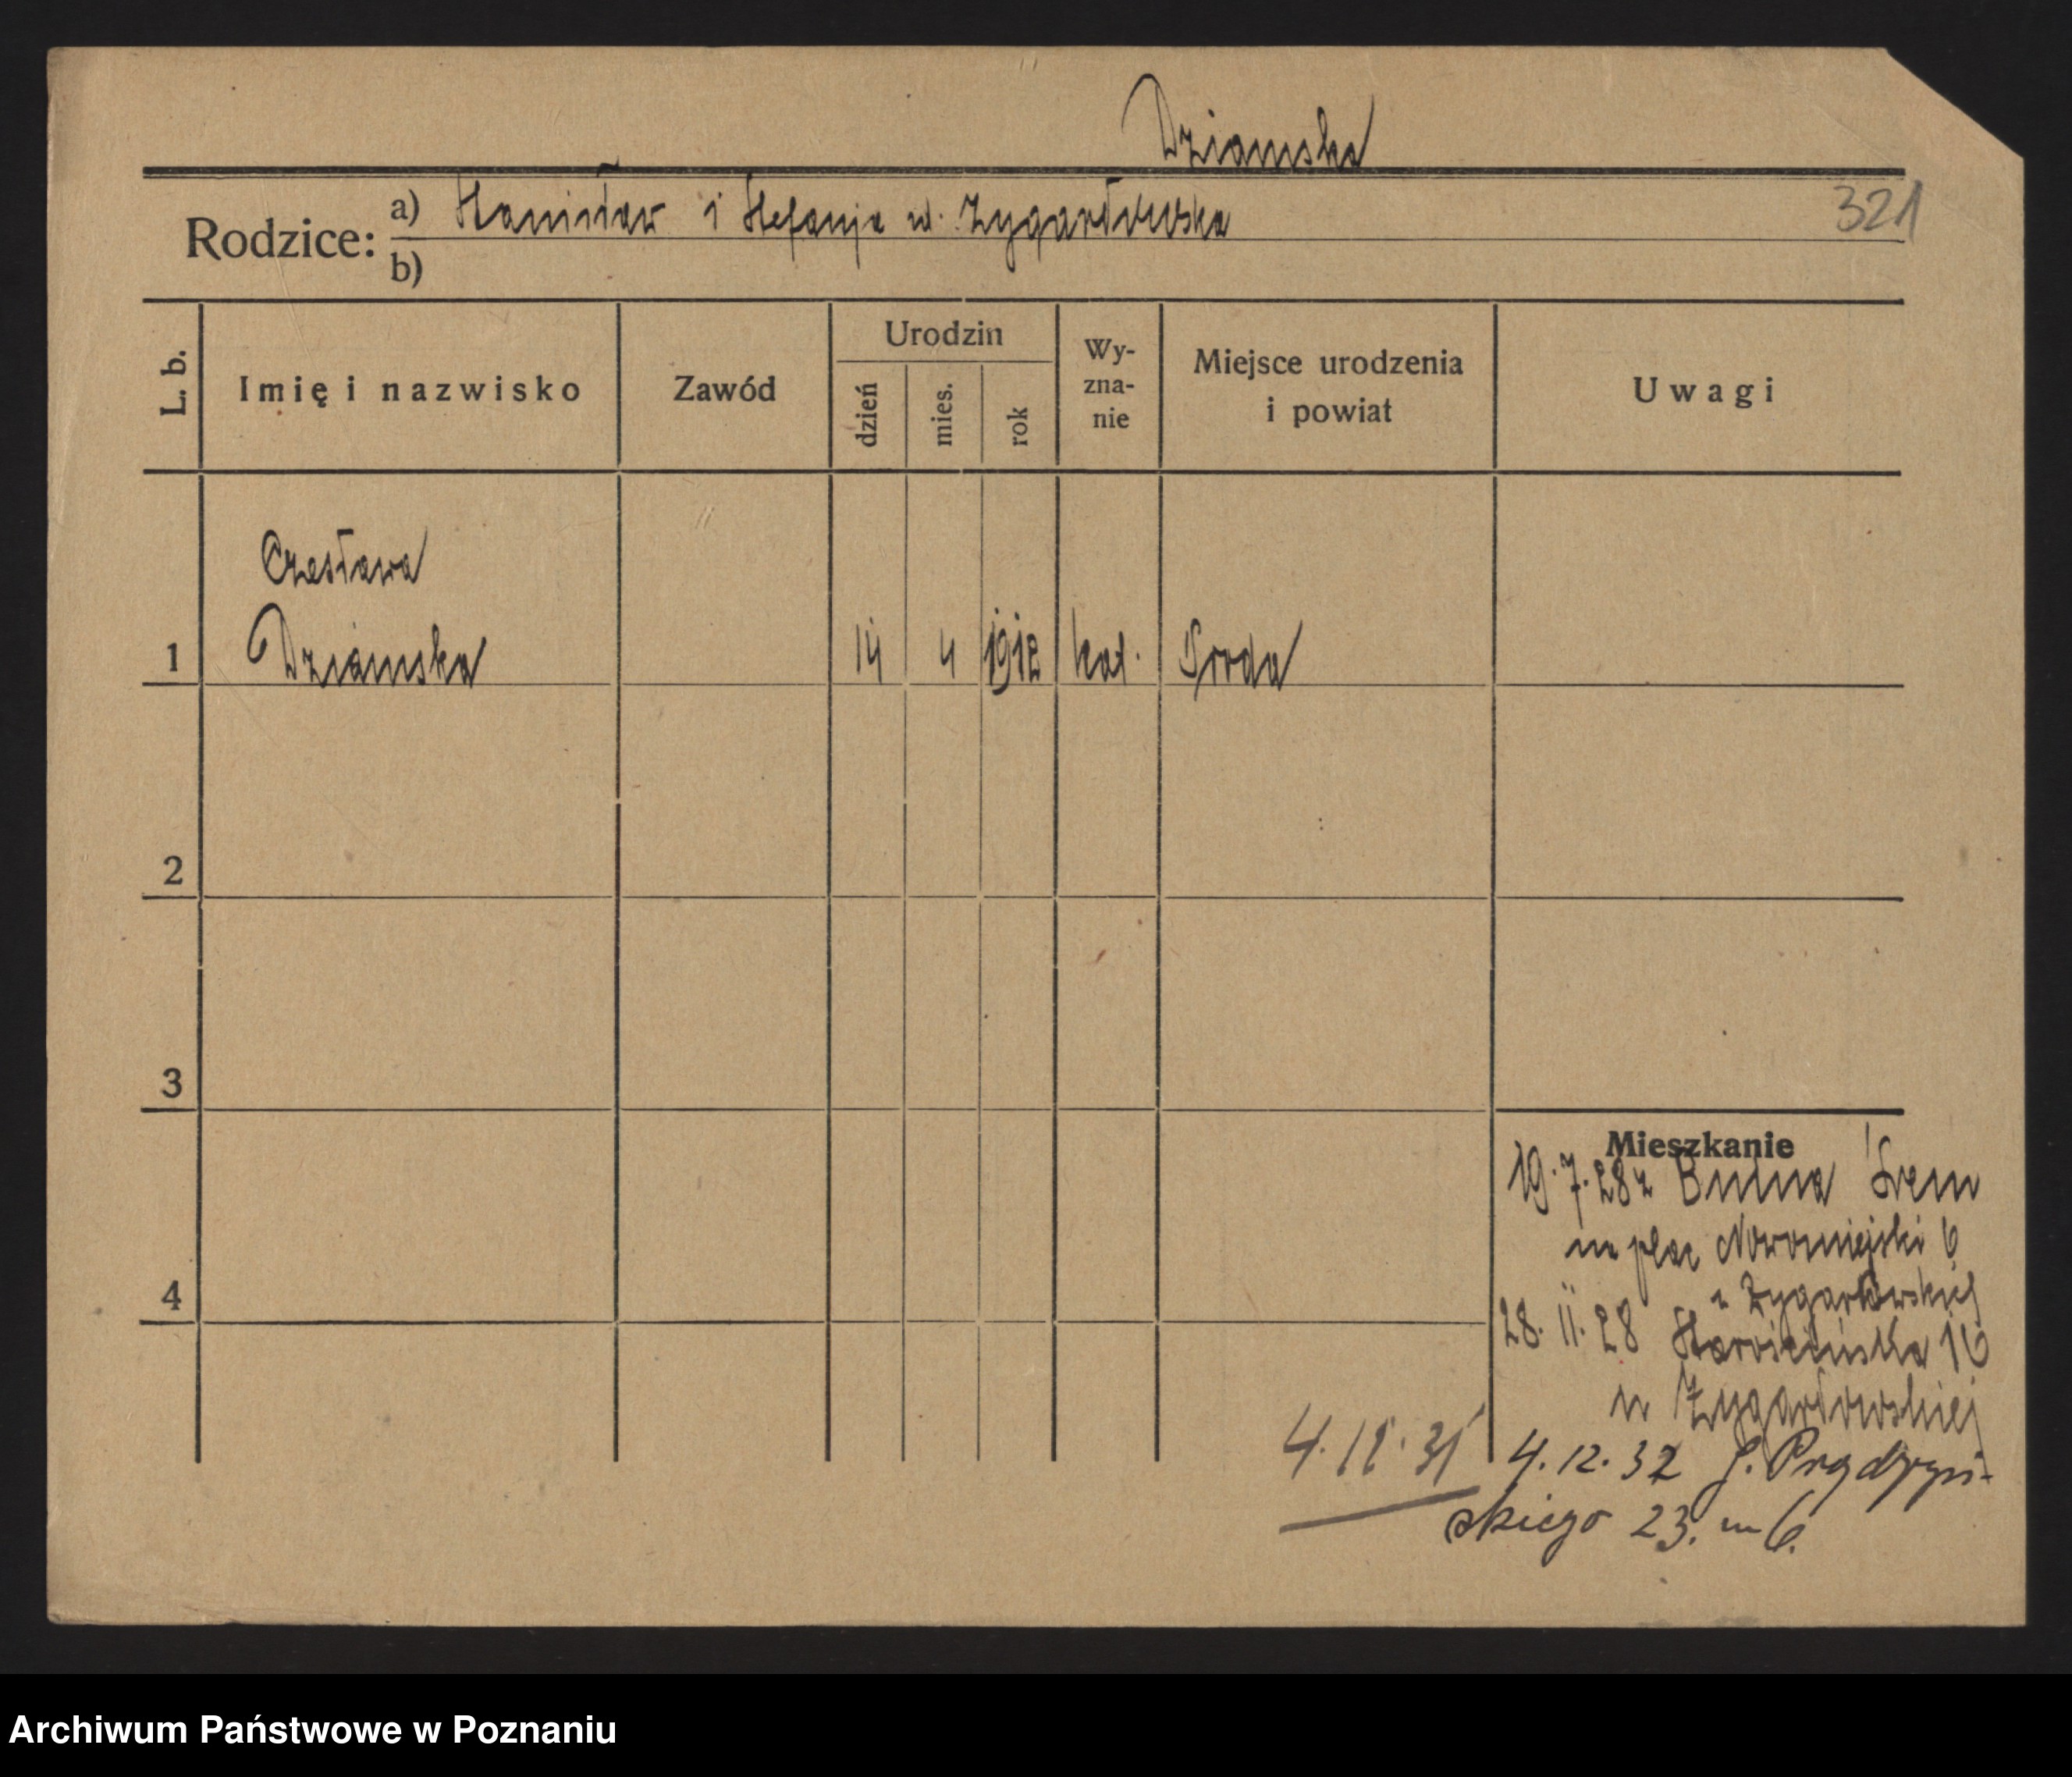 Dziamska
321
Rodzice: a) Stanisław i Stefanja ur. Zygarłowska
b)
L. b. Imię i nazwisko Zawód Urodzin dzień mies. rok Wy-zna-nie Miejsce urodzenia i powiat Uwagi
Czesława
1 Dziamska 14 4 1912 kat. Sroda
2
3
4
Mieszkanie
19.7.28 z Bnina Śrem
na plac Nowomiejski 6
u Zygarłowskiej
28. 11. 28 16
u Zygarłowskiej
4. 12. 31 4. 12. 32 J. Prądzyń-
skiego 23. m 6.
Archiwum Państwowe w Poznaniu